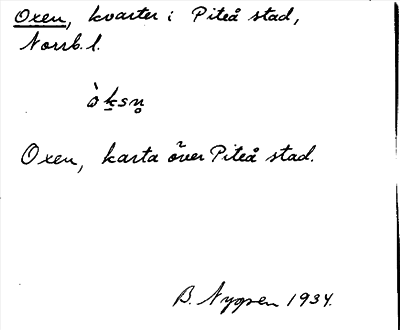 Oxen, kvarter i Piteå stad,
Norrb. l.
òksn̥
Oxen, karta över Piteå stad.
B. Nygren 1934.